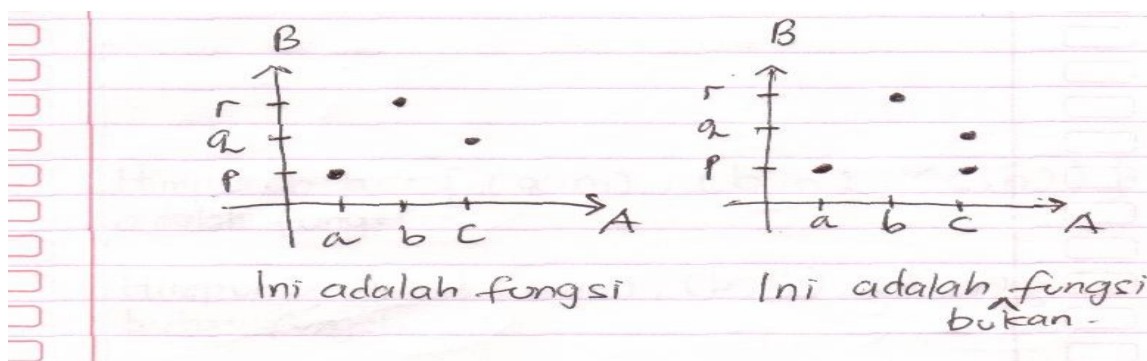 B
r
q
p
a b c A
Ini adalah fungsi
B
r
q
p
a b c A
Ini adalah fungsi
bukan.